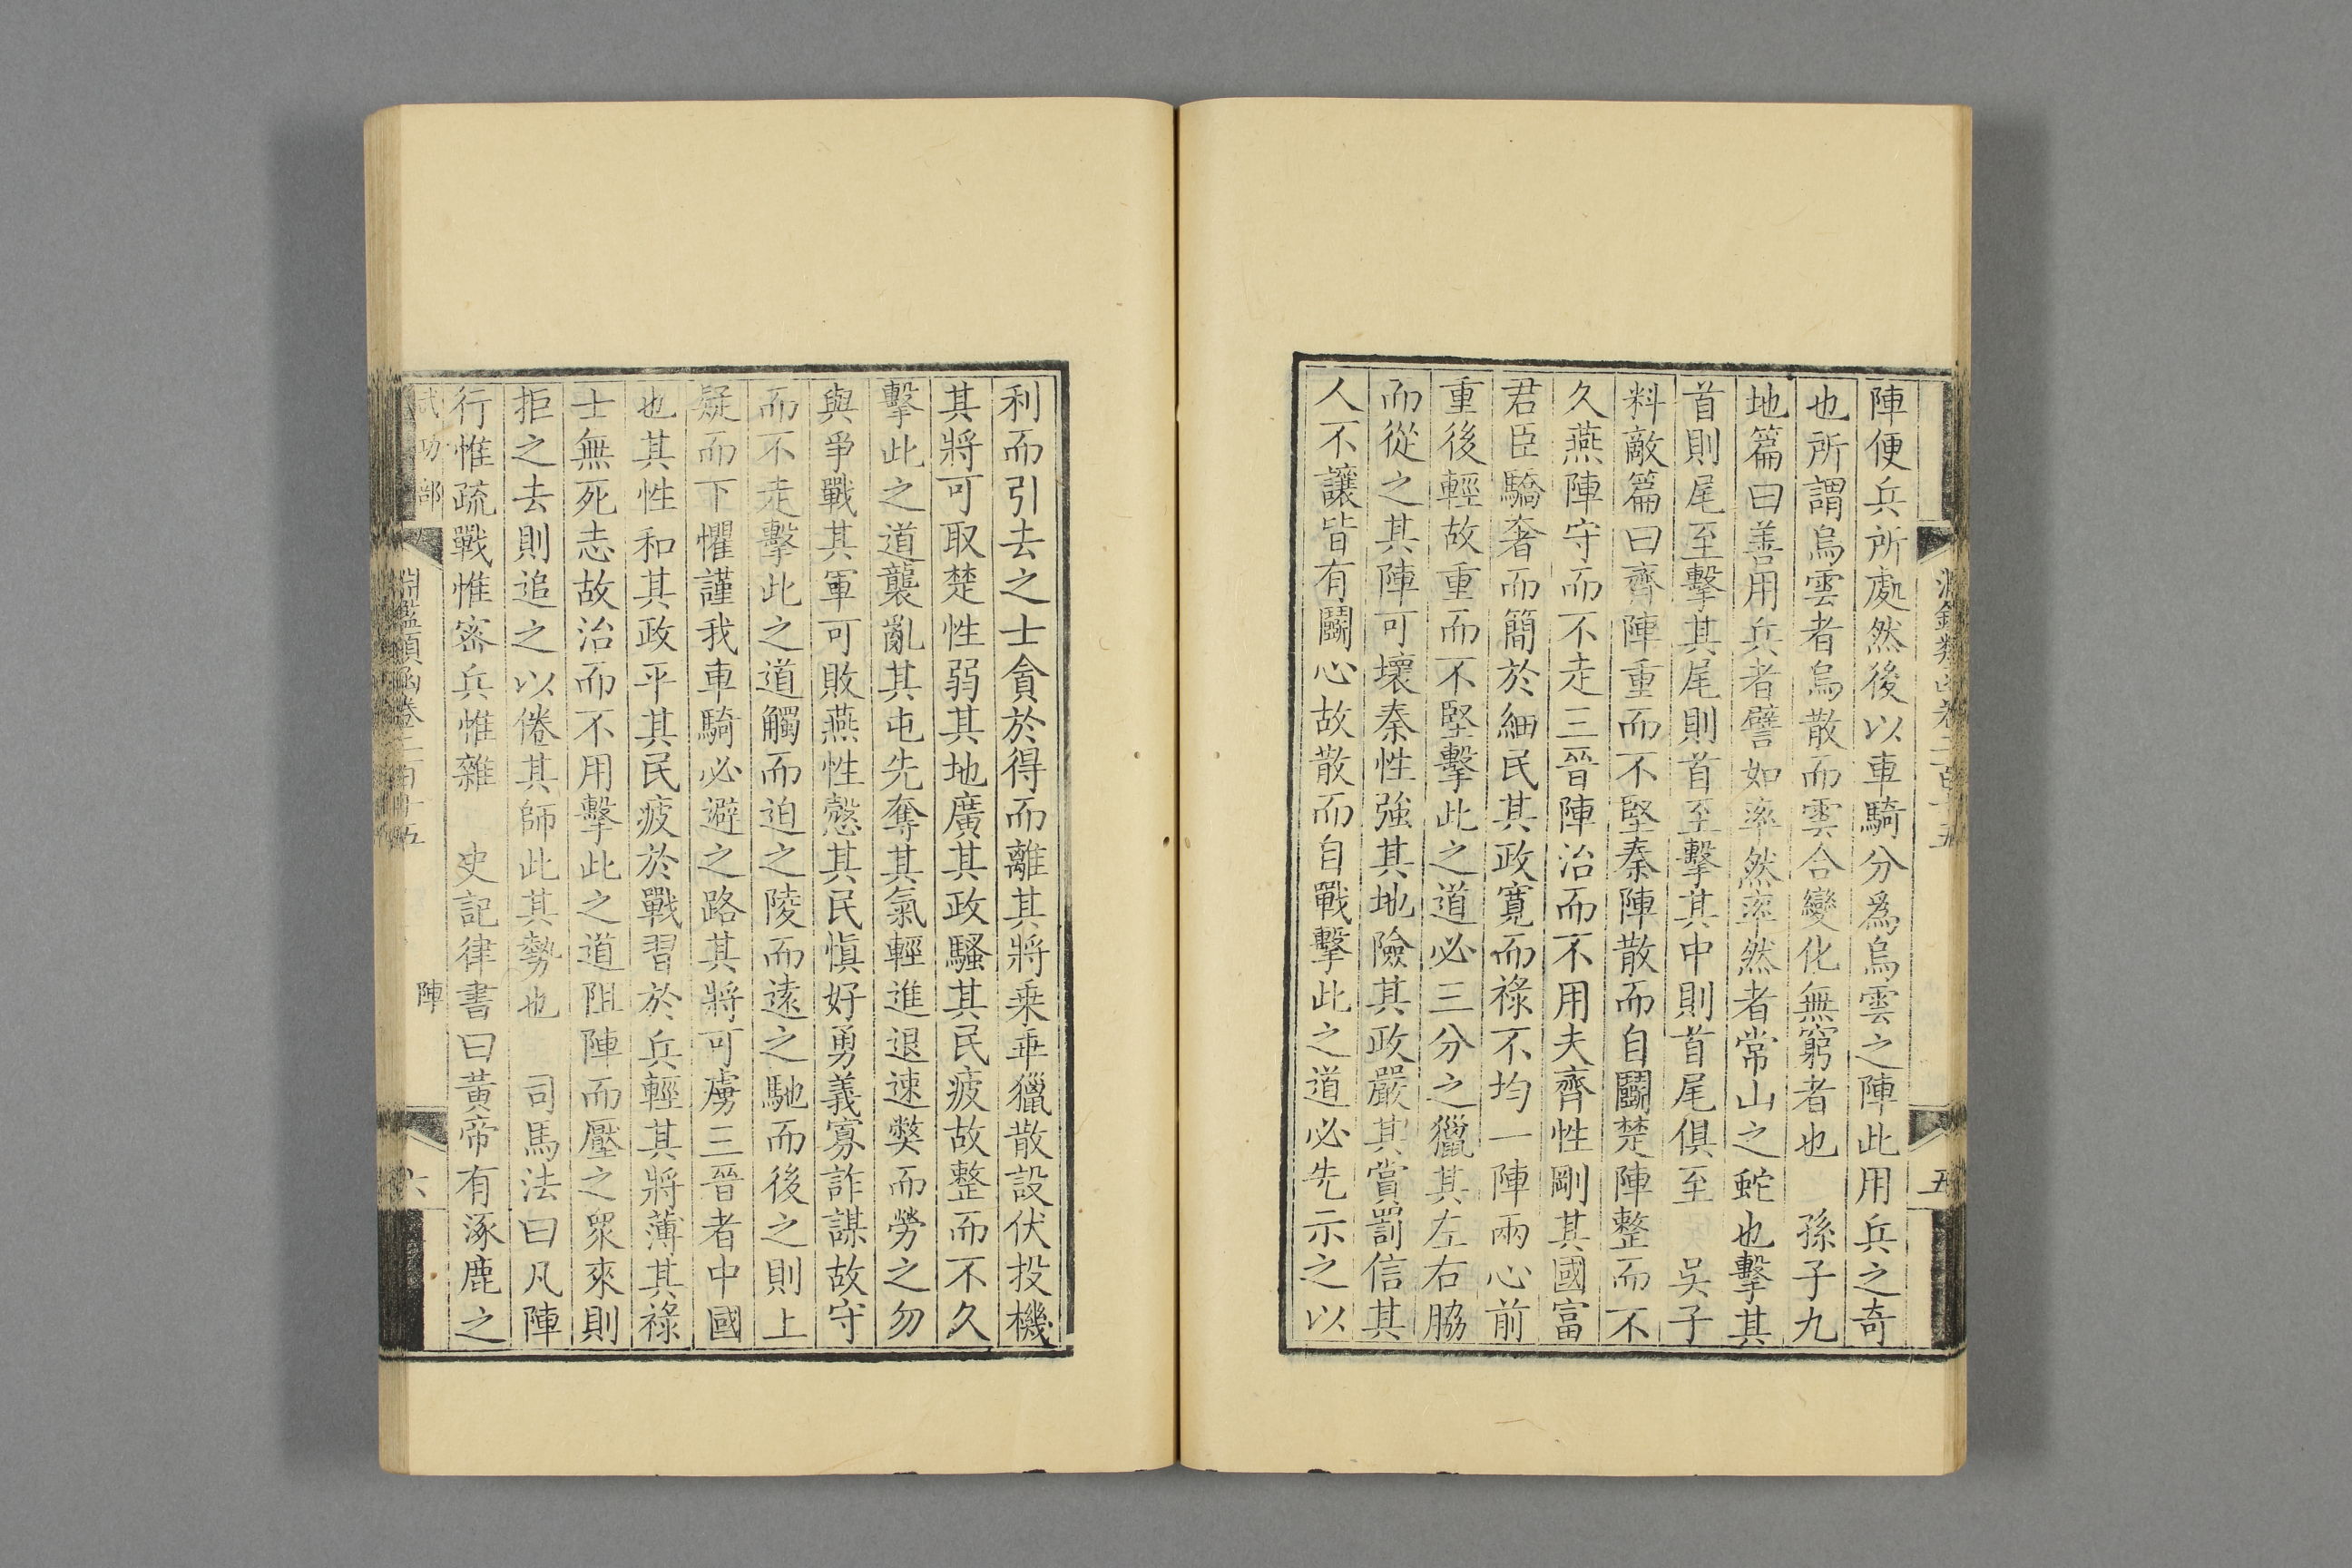 陣便兵所處然後以車騎分爲烏雲之陣此用兵之奇
也所謂烏雲者烏散而雲合變化無窮者也　孫子九
地篇曰善用兵者譬如率然率然者常山之蛇也擊其
首則尾至擊其尾則首至擊其中則首尾俱至　吳子
料敵篇曰齊陣重而不堅秦陣散而自鬭楚陣整而不
久燕陣守而不走三晉陣治而不用夫齊性剛其國富
君臣驕奢而簡於細民其政寬而祿不均一陣兩心前
重後輕故重而不堅擊此之道必三分之獵其左右脇
而從之其陣可壞秦性強其地險其政嚴其賞罰信其
人不讓皆有鬭心故散而自戰擊此之道必先示之以
五
利而引去之士貪於得而離其將乗乖獵散設伏投機
其將可取楚性弱其地廣其政騷其民疲故整而不久
擊此之道襲亂其屯先奪其氣輕進退速弊而勞之勿
與爭戰其軍可敗燕性慤其民慎好勇義寡詐謀故守
而不走擊此之道觸而迫之陵而遠之馳而後之則上
疑而下懼謹我車騎必避之路其將可虜三晉者中國
也其性和其政平其民疲於戰習於兵輕其將薄其祿
士無死志故治而不用擊此之道阻陣而壓之衆來則
拒之去則追之以倦其師此其勢也　司馬法曰凡陣
行惟疏戰惟密兵惟雜　史記律書曰黃帝有涿鹿之
武功部　淵鑑類函卷二百十五　陣　六